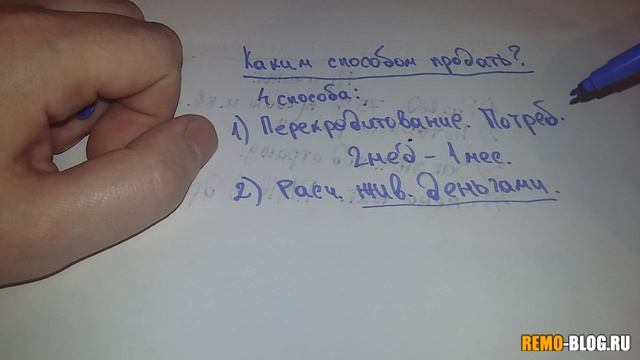 Каким способом продать?
4 способа:
1) Перекредитование. Потреб.
2 нед - 1 мес.
2) Расч. жив. деньгами.
REMO-BLOG.RU